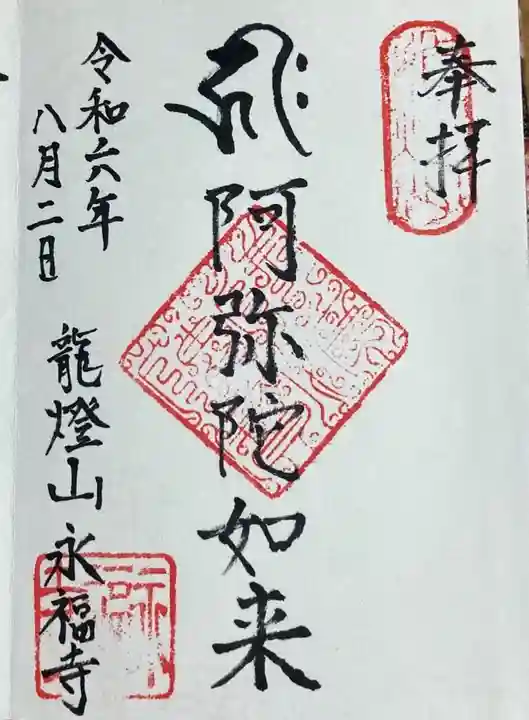 奉拝
阿弥陀如来
令和六年
八月二日
龍燈山永福寺